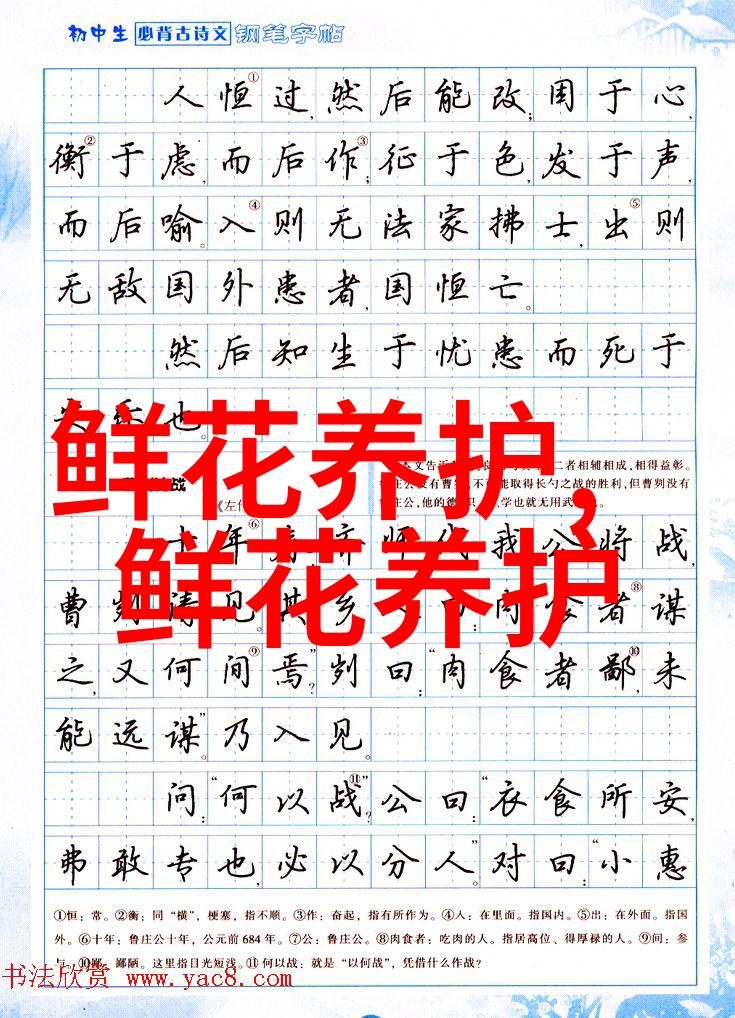 初中生 必背古诗文 钢笔字帖
人恒①过,然后能改;困于心,
衡②于虑,而后作③;征于色,发于声,
而后喻。入④则无法家拂士,出⑤则
无敌国外患者,国恒亡。
然后知生于忧患而死于
也
鲜花养护,
战
《左传
本文告诉
二者相辅相成,相得益彰。
没有曹
能取得长勺之战的胜利,但曹刿没有
庄公,他的德
学也就无用武
十年⑥
师伐我公将战,
鲜花养护
曹刿请见。其乡
曰:肉食者⑧谋
之,又何间⑨焉?”刿曰:“肉食者鄙⑩,未
能远谋。”乃入见。
问:“何以战⑪?”公曰:“衣食所安,
弗敢专也,必以分人。”对曰:“小惠
①恒:常。②衡:同“横”,梗塞,指不顺。③作:奋起,指有所作为。④入:在里面。指国内。⑤出:在外面。指国
外。⑥十年:鲁庄公十年,公元前684年。⑦公:鲁庄公。⑧肉食者:吃肉的人。指居高位、得厚禄的人。⑨间:参
与。⑩鄙:鄙陋。这里指目光短浅。⑪何以战:就是“以何战”,凭借什么作战?
书法欣赏 www.yac8.com